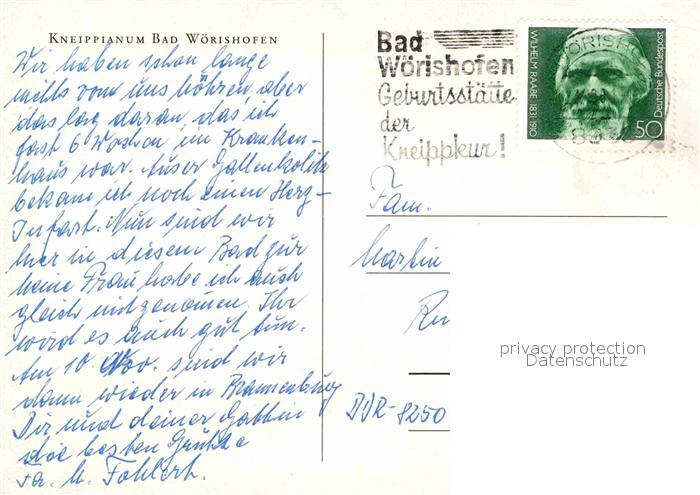 KNEIPPIANUM BAD WÖRISHOFEN
Wir haben schon lange
nichts von uns höhren aber
das lag daran, das ich
fast 6 Wochen im Kranken-
haus war. Auser Gallenkolik
bekam ich noch einen Herz-
Infart. Nun sind wir
hier in diesem Bad zur
meine Frau habe ich auch
gleich mitgenomen. Ihr
wird es auch gut tun.
Am 10. Nov. sind wir
dann wieder in Brannenburg
Dir und deiner Gattin
die besten Grüße
Fa.
Bad
Wörishofen
Geburtsstätte
der
Kneippkur!
WÖRISH
WILHELM RAABE 1831-1910
Deutsche Bundespost
50
Fam.
Martin
DDR-8250
privacy protection
Datenschutz